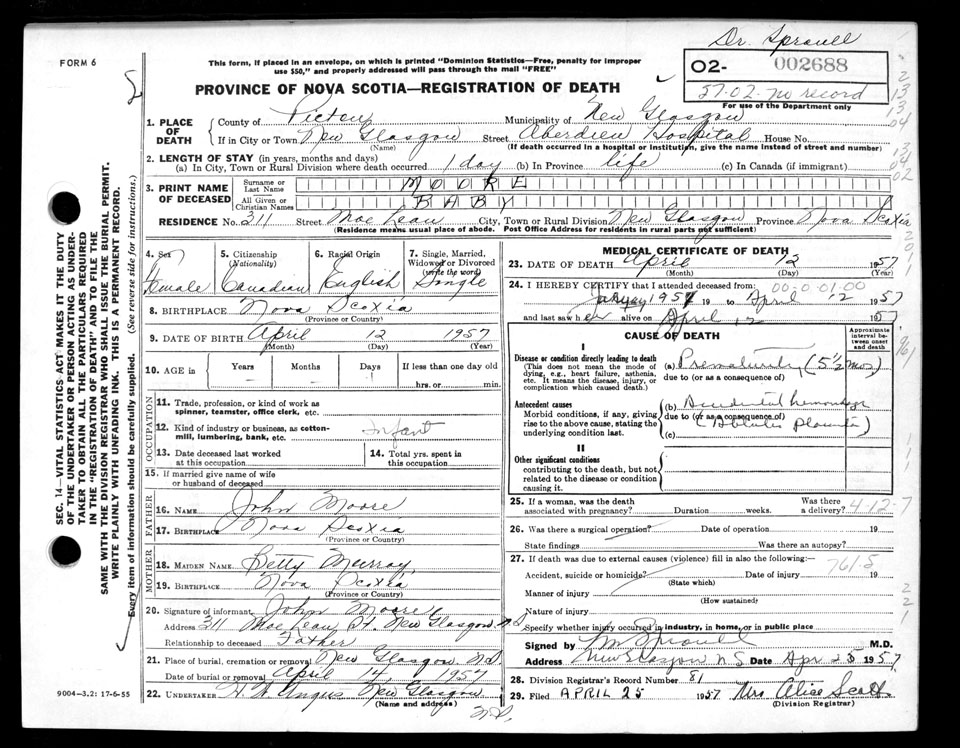 Dr. Sproull
FORM 6
This form, if placed in an envelope, on which is printed "Dominion Statistics—Free, penalty for improper
use $50," and properly addressed will pass through the mail "FREE"
O2- 002688
57.02. no record
For use of the Department only
PROVINCE OF NOVA SCOTIA—REGISTRATION OF DEATH
1. PLACE OF DEATH
County of Pictou Municipality of New Glasgow
If in City or Town New Glasgow Street Aberdeen Hospital House No.
(Name) (If death occurred in a hospital or institution, give the name instead of street and number)
2. LENGTH OF STAY (in years, months and days)
(a) In City, Town or Rural Division where death occurred 1 day (b) In Province life (c) In Canada (if immigrant)
3. PRINT NAME OF DECEASED
Surname or Last Name MOORE
All Given or Christian Names BABY
RESIDENCE No. 311 Street MacLean City, Town or Rural Division New Glasgow Province Nova Scotia
(Residence means usual place of abode. Post Office Address for residents in rural parts not sufficient)
4. Sex Female
5. Citizenship (Nationality) Canadian
6. Racial Origin English
7. Single, Married, Widowed or Divorced (write the word) Single
8. BIRTHPLACE Nova Scotia
(Province or Country)
9. DATE OF BIRTH April 12 1957
(Month) (Day) (Year)
10. AGE in Years Months Days If less than one day old
hrs. or min.
OCCUPATION
11. Trade, profession, or kind of work as
spinner, teamster, office clerk, etc.
12. Kind of industry or business, as cotton-
mill, lumbering, bank, etc. Infant
13. Date deceased last worked
at this occupation
14. Total yrs. spent in
this occupation
15. If married give name of wife
or husband of deceased
FATHER
16. NAME John Moore
17. BIRTHPLACE Nova Scotia
(Province or Country)
MOTHER
18. MAIDEN NAME Betty Murray
19. BIRTHPLACE Nova Scotia
(Province or Country)
20. Signature of informant John Moore
Address 311 MacLean St. New Glasgow. N.S
Relationship to deceased Father
21. Place of burial, cremation or removal New Glasgow. N.S
Date of burial or removal April 14, 1957
22. UNDERTAKER H. W. Angus New Glasgow
(Name and address) N.S.
9004-3.2: 17-6-55
MEDICAL CERTIFICATE OF DEATH
23. DATE OF DEATH April 12 1957
(Month) (Day) (Year)
24. I HEREBY CERTIFY that I attended deceased from: 00.0.01.00
1957 19 to April 12 1957
and last saw her alive on April 12 1957
CAUSE OF DEATH
Approximate interval between onset and death
I
Disease or condition directly leading to death
(This does not mean the mode of
dying, e.g., heart failure, asthenia,
etc. It means the disease, injury, or
complication which caused death.)
(a) Prematurity (5½ mos)
due to (or as a consequence of)
Antecedent causes
Morbid conditions, if any, giving
rise to the above cause, stating the
underlying condition last.
(b) Accidental hemorrhage
due to (or as a consequence of)
(c)
II
Other significant conditions
contributing to the death, but not
related to the disease or condition
causing it.
25. If a woman, was the death
associated with pregnancy? Duration weeks. Was there a delivery? 4-12-7
26. Was there a surgical operation? Date of operation 19
State findings Was there an autopsy?
27. If death was due to external causes (violence) fill in also the following:— 761.5
Accident, suicide or homicide? Date of injury 19
(State which)
Manner of injury
(How sustained)
Nature of injury
Specify whether injury occurred in industry, in home, or in public place
Signed by M Sproull M.D.
Address New Glasgow N S Date Apr 25 1957
28. Division Registrar's Record Number 81
29. Filed APRIL 25 1957 Mrs. Alice Scott
(Division Registrar)
SEC. 14—VITAL STATISTICS ACT MAKES IT THE DUTY
OF THE UNDERTAKER OR PERSON ACTING AS UNDER-
TAKER TO OBTAIN ALL THE PARTICULARS REQUIRED
IN THE "REGISTRATION OF DEATH" AND TO FILE THE
SAME WITH THE DIVISION REGISTRAR WHO SHALL ISSUE THE BURIAL PERMIT.
WRITE PLAINLY WITH UNFADING INK. THIS IS A PERMANENT RECORD.
Every item of information should be carefully supplied. (See reverse side for instructions.)